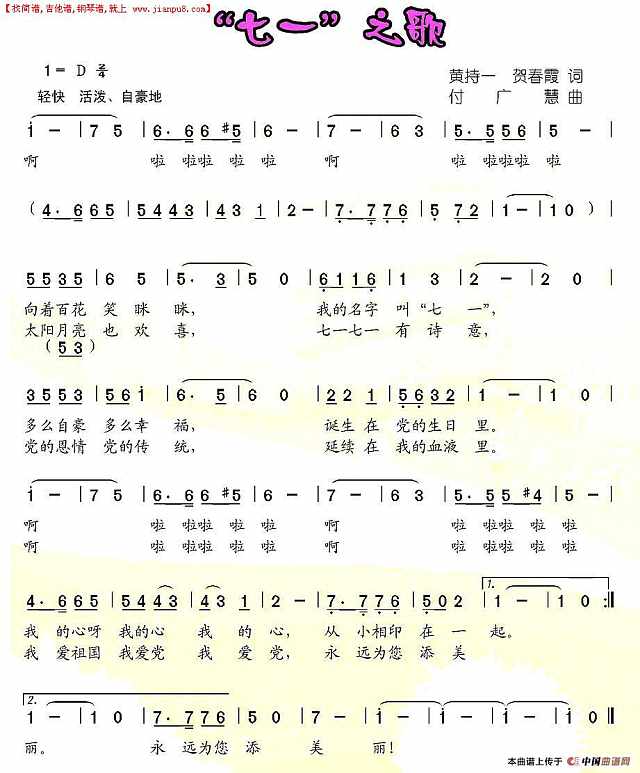 【找简谱,吉他谱,钢琴谱,就上 www.jianpu8.com】
“七一”之歌
1= D 2/4
黄持一 贺春霞 词
轻快 活泼、自豪地
付广慧 曲
i - | 7 5 | 6. 6 6 #5 | 6 - | i - | 7 5 | 5. 5 5 6 | 5 - |
啊 啦 啦啦 啦啦 啦 啊 啦 啦啦 啦啦 啦
( 4. 6 6 5 | 5 4 4 3 | 4 3 1 | 2 - | 7. 7 7 6 | 5 7 2 | 1 - | 1 0 ) |
5 5 3 5 | 6 5 | 5. 3 | 5 0 | 6 1 1 6 | 1 3 | 2 - | 2 0 |
向着百花 笑 眯 眯, 我的名字 叫“七 一”,
太阳月亮 也 欢 喜, 七一七一 有 诗 意,
( 5 3 )
3 5 5 3 | 5 5 6 i | 6. 5 | 6 0 | 2 2 1 | 5 6 3 2 | 2 - | 2 0 |
多么自豪 多么幸 福, 诞生 在 党的生日 里。
党的恩情 党的传 统, 延续 在 我的血液 里。
i - | 7 5 | 6. 6 6 #5 | 6 - | i - | 7 5 | 5. 5 5 #4 | 5 - |
啊 啦 啦啦 啦啦 啦 啦 啊 啦 啦啦 啦 啦 啦
啊 啦 啦啦 啦啦 啦 啦 啊 啦 啦啦 啦 啦 啦
4. 6 6 5 | 5 4 4 3 | 4 3 1 | 2 - | 7. 7 7 6 | 5 0 2 | 1. 1 - | 1 0 :||
我 的心呀 我的心 我 的 心, 从 小相印 在 一 起。
我 爱祖国 我爱党 我 爱 党, 永 远为您 添 美
2. 1 - | 1 0 | 7. 7 7 6 | 5 0 2 | 1 - | 1 - | 1 - | 1 0 ||
丽。 永 远为您 添 美 丽!
本曲谱上传于 中国曲谱网